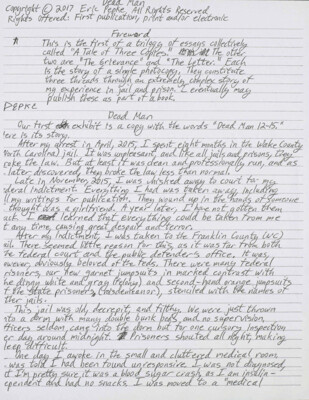 Dead Man
Copyright © 2017 Eric Pepke, All Rights Reserved
Rights offered: First publication, print and/or electronic
Foreword
This is the first of a trilogy of essays collectively
called "A Tale of Three Copies." The other
two are "The Grievance" and "The Letter." Each
is the story of a single photocopy. They constitute
three threads through an extremely complex story of
my experience in jail and prison. I eventually may
publish these as part of a book.
PEPKE
Dead Man
Our first exhibit is a copy with the words "Dead Man 12-15."
Here is its story.
After my arrest in April, 2015, I spent eight months in the Wake County
North Carolina) jail. It was unpleasant, and like all jails and prisons, they
broke the law. But at least it was clean and professionally run, and as
I later discovered, they broke the law less than normal.
Late in November 2015, I was whisked away to court for my
federal indictment. Everything I had was taken away, including
all my writings for publication. They wound up in the hands of someone
I thought was a girlfriend. A year later, I have not gotten them
back. I learned that everything could be taken from me
at any time, causing great despair and terror.
After my indictment, I was taken to the Franklin County (NC)
jail. There seemed little reason for this, as it was far from both
the federal court and the public defender's office. It was,
however, obviously beloved of the Feds. There were many Federal
prisoners, our new garnet jumpsuits in marked contrast with
the dingy white and gray (felony) and second-hand orange jumpsuits
of the state prisoners (misdemeanor), stenciled with the names of
other jails.
This jail was old, decrepit, and filthy. We were just thrown
into a dorm with many double bunk beds and no supervision.
Officers seldom came into the dorm but for one cursory inspection
per day around midnight. Prisoners shouted all night, making
sleep difficult.
One day I awoke in the small and cluttered medical room.
I was told I had been found unresponsive. I was not diagnosed,
but I'm pretty sure it was a blood sugar crash, as I am insulin-
dependent and had no snacks. I was moved to a "medical